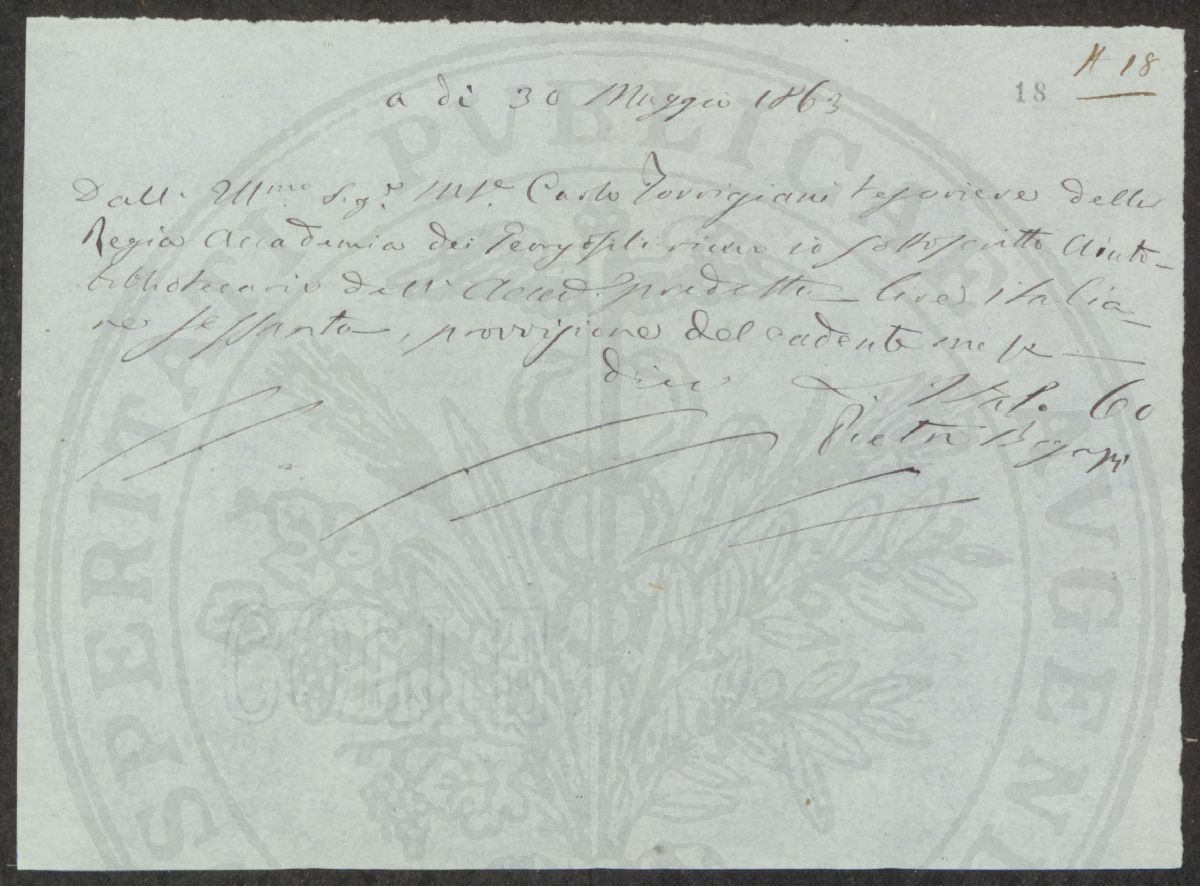 A 18
18
a di 30 Maggio 1863
Dall' Ill.mo Sig.r M.se Carlo Torrigiani tesoriere della
Regia Accademia dei Georgofili ricevo io sottoscritto Aiuto-
bibliotecario dell' Accad. predetta lire italia-
ne sessanta, provvisione del cadente mese
dico Ital. 60
Pietro
PROSPERITATI PVBLICAE AVGENDAE